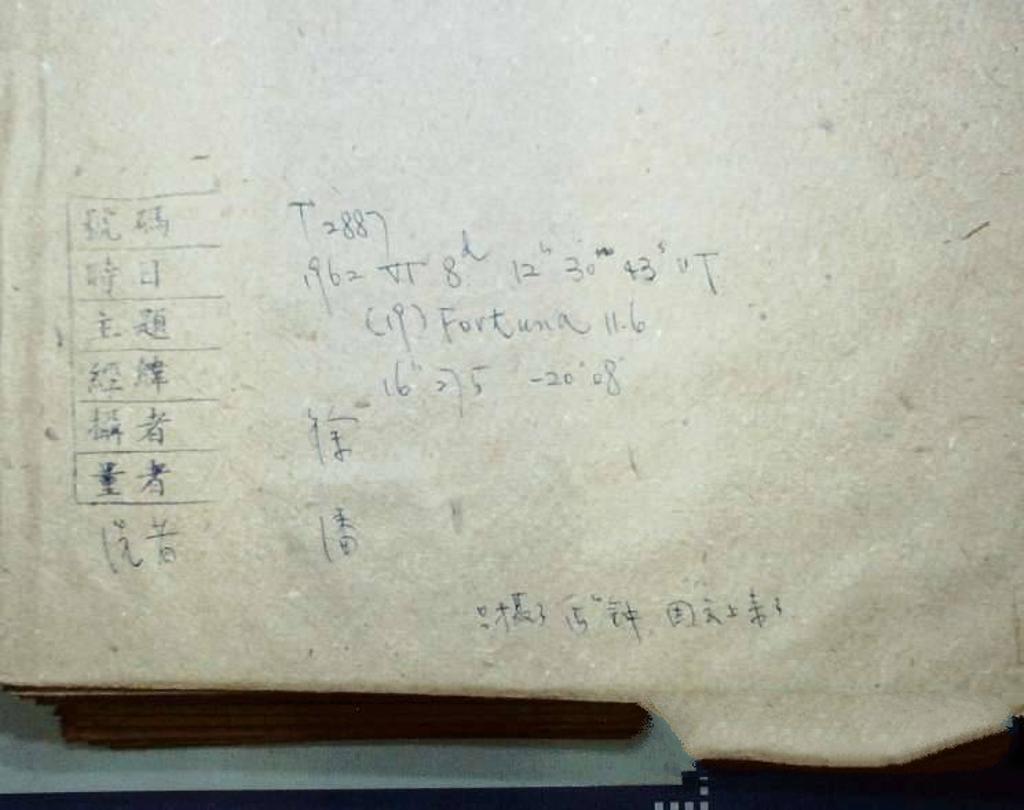 號碼 T 2887
時日 1962 VI 8d 12h 30m 43s UT
主題 (19) Fortuna 11.6
經緯 16h 27.5 -20°08'
攝者 徐
量者
洗者 潘
只攝了 15m 钟 因云上来了